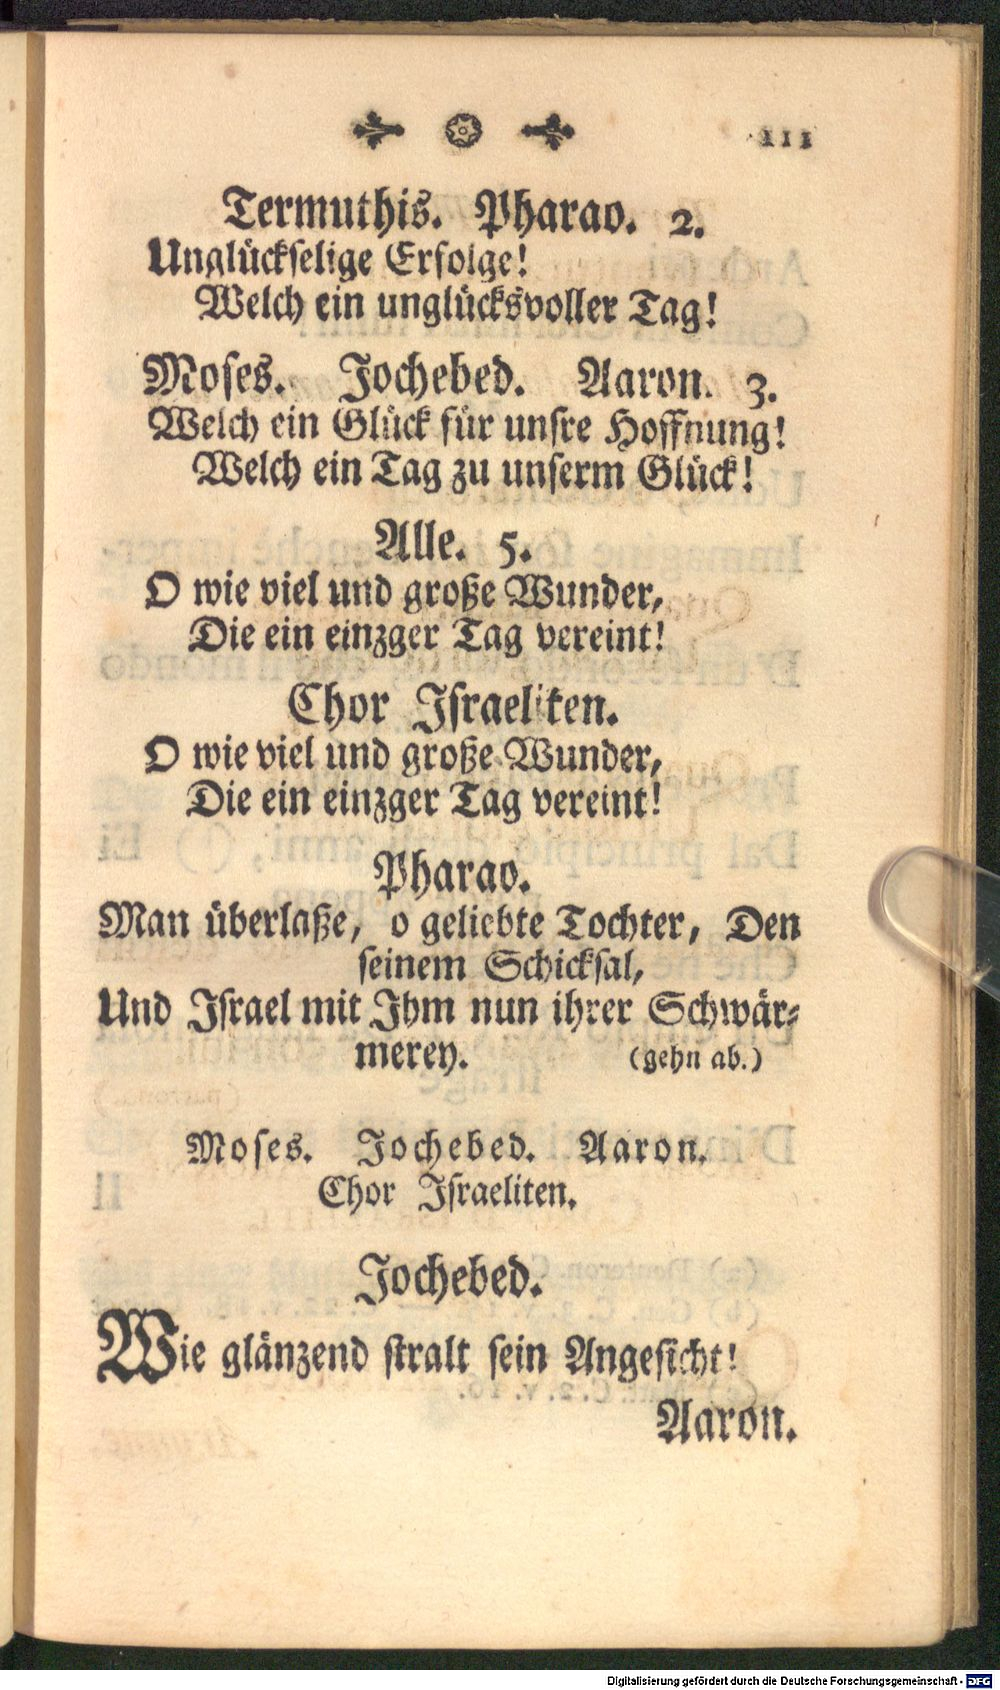 111
Termuthis. Pharao. 2.
Unglückselige Erfolge!
Welch ein unglücksvoller Tag!
Moses. Jochebed. Aaron. 3.
Welch ein Glück für unsre Hoffnung!
Welch ein Tag zu unserm Glück!
Alle. 5.
O wie viel und große Wunder,
Die ein einzger Tag vereint!
Chor Israeliten.
O wie viel und große Wunder,
Die ein einzger Tag vereint!
Pharao.
Man überlaße, o geliebte Tochter, Den
seinem Schicksal,
Und Israel mit Ihm nun ihrer Schwär-
merey. (gehn ab.)
Moses. Jochebed. Aaron.
Chor Israeliten.
Jochebed.
Wie glänzend stralt sein Angesicht!
Aaron.
Digitalisierung gefördert durch die Deutsche Forschungsgemeinschaft - DFG